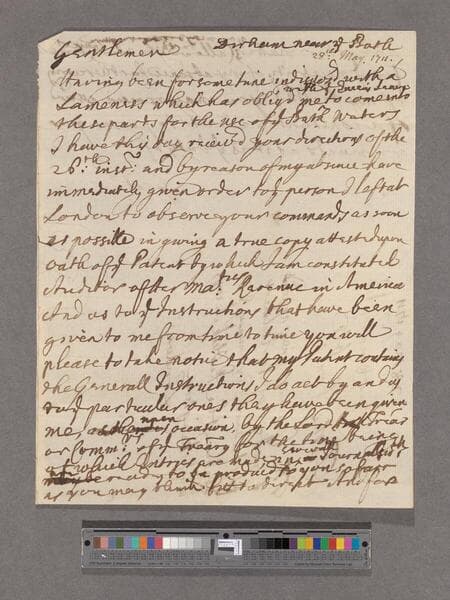 Gentlemen Dirham near ye Bath
28th May. 1711.
Having been for some time indisposd with a
Lameness which has oblig'd me to come into
with ye Queens Leave
these parts for the use of ye Bath Waters
I have this day receiv'd your directions of the
26th inst: and by reason of my absence have
immediately given order to ye person I left at
London to observe your commands as soon
as possible in giving a true copy attested upon
oath of ye Patent by which I am constituted
Auditor of her Ma:ties Revenue in America
And as to ye Instructions that have been
given to me from time to time you will
please to take notice that my Patent contains
the Generall Instructions I do act by and as
to ye particular ones they have been given
me, upon occasion, by the Lord Treãr
or Comm:rs of ye Treãry for the time being
of which Entrys are made in
ready to be produc'd to you
as you may think fit to direct And for